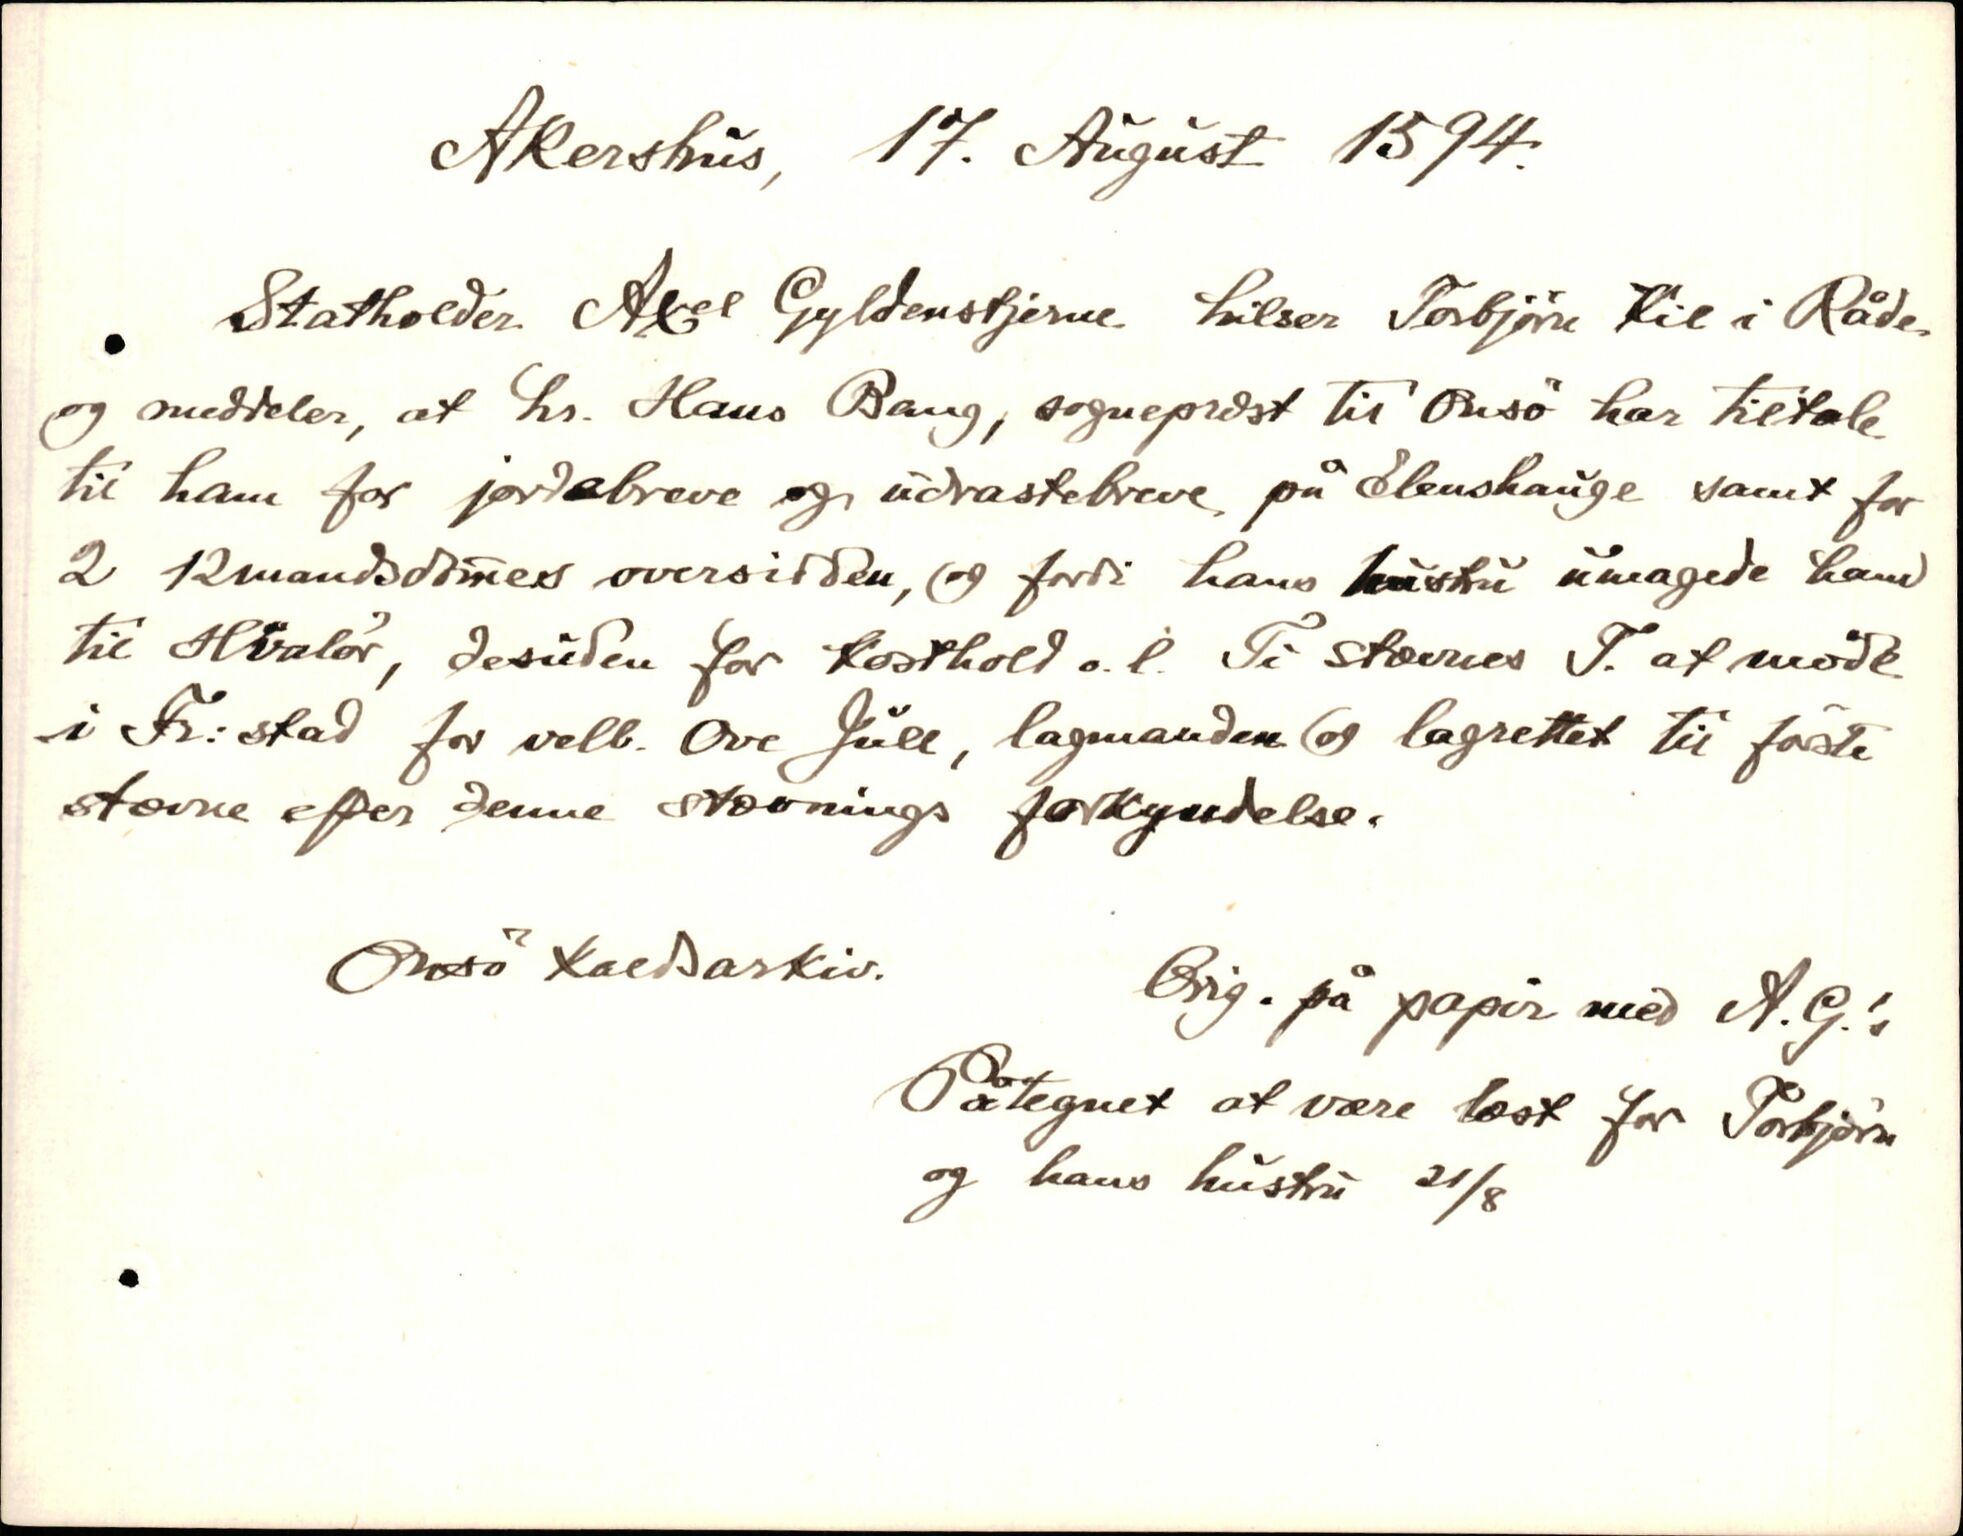 Akershus, 17. August 1594.
Statholder Axel Gyldenstjerne hilser Torbjörn Kil i Råde
og meddeler, at hr. Hans Bang, sogneprest til Onsö har tiltale
til ham for jordebreve og udrastebreve på Elenshauge samt for
2 12mandsdom̄es oversidden, og fordi hans hustru umagede ham
til Hvalör, desuden for kosthold o. l. Ti stævnes T. at möde
i Fr:stad for velb. Ove Juel, lagmanden og lagrettet til förste
stævne efter denne stævnings forkyndelse.
Onsö kaldsarkiv.
Orig. på papir med A. G.'s
Påtegnet at være læst for Torbjörn
og hans hustru 21/8